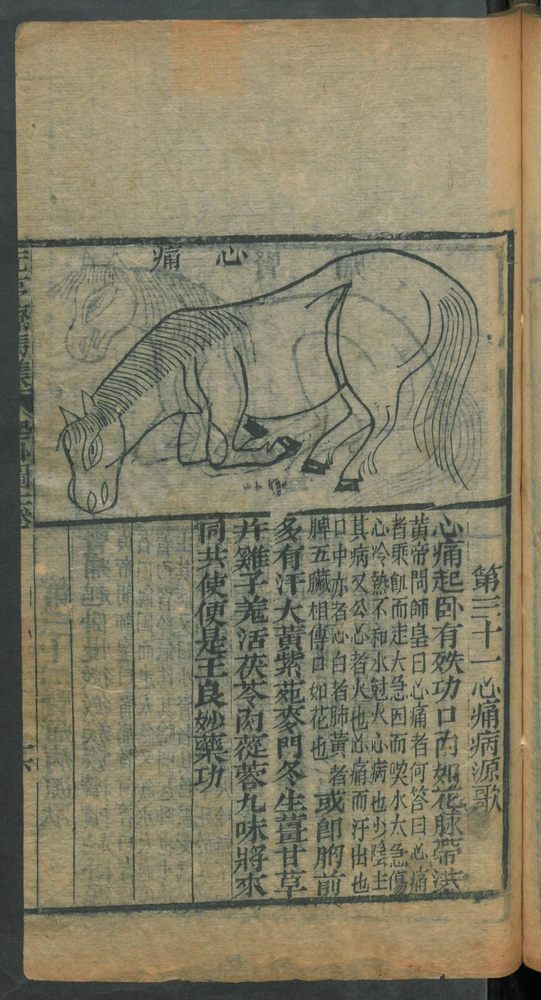 心痛
第三十一心痛病源歌
心痛起卧有殃功口内如花脉帶洪
黄帝問師皇曰心痛者何答曰心痛
者乘飢而走大急因而喫水太急傷
心冷熱不和水尅火心病也少陰主
其病又公心者火也心痛而汗出也
口中赤者心白者肺黄者
脾五臓相傳曰如花也
或卽胷前
多有汗大黄紫菀麥門冬生薑甘草
并雞子羌活茯苓肉蓯蓉九味將來
同共使便是王良妙藥功